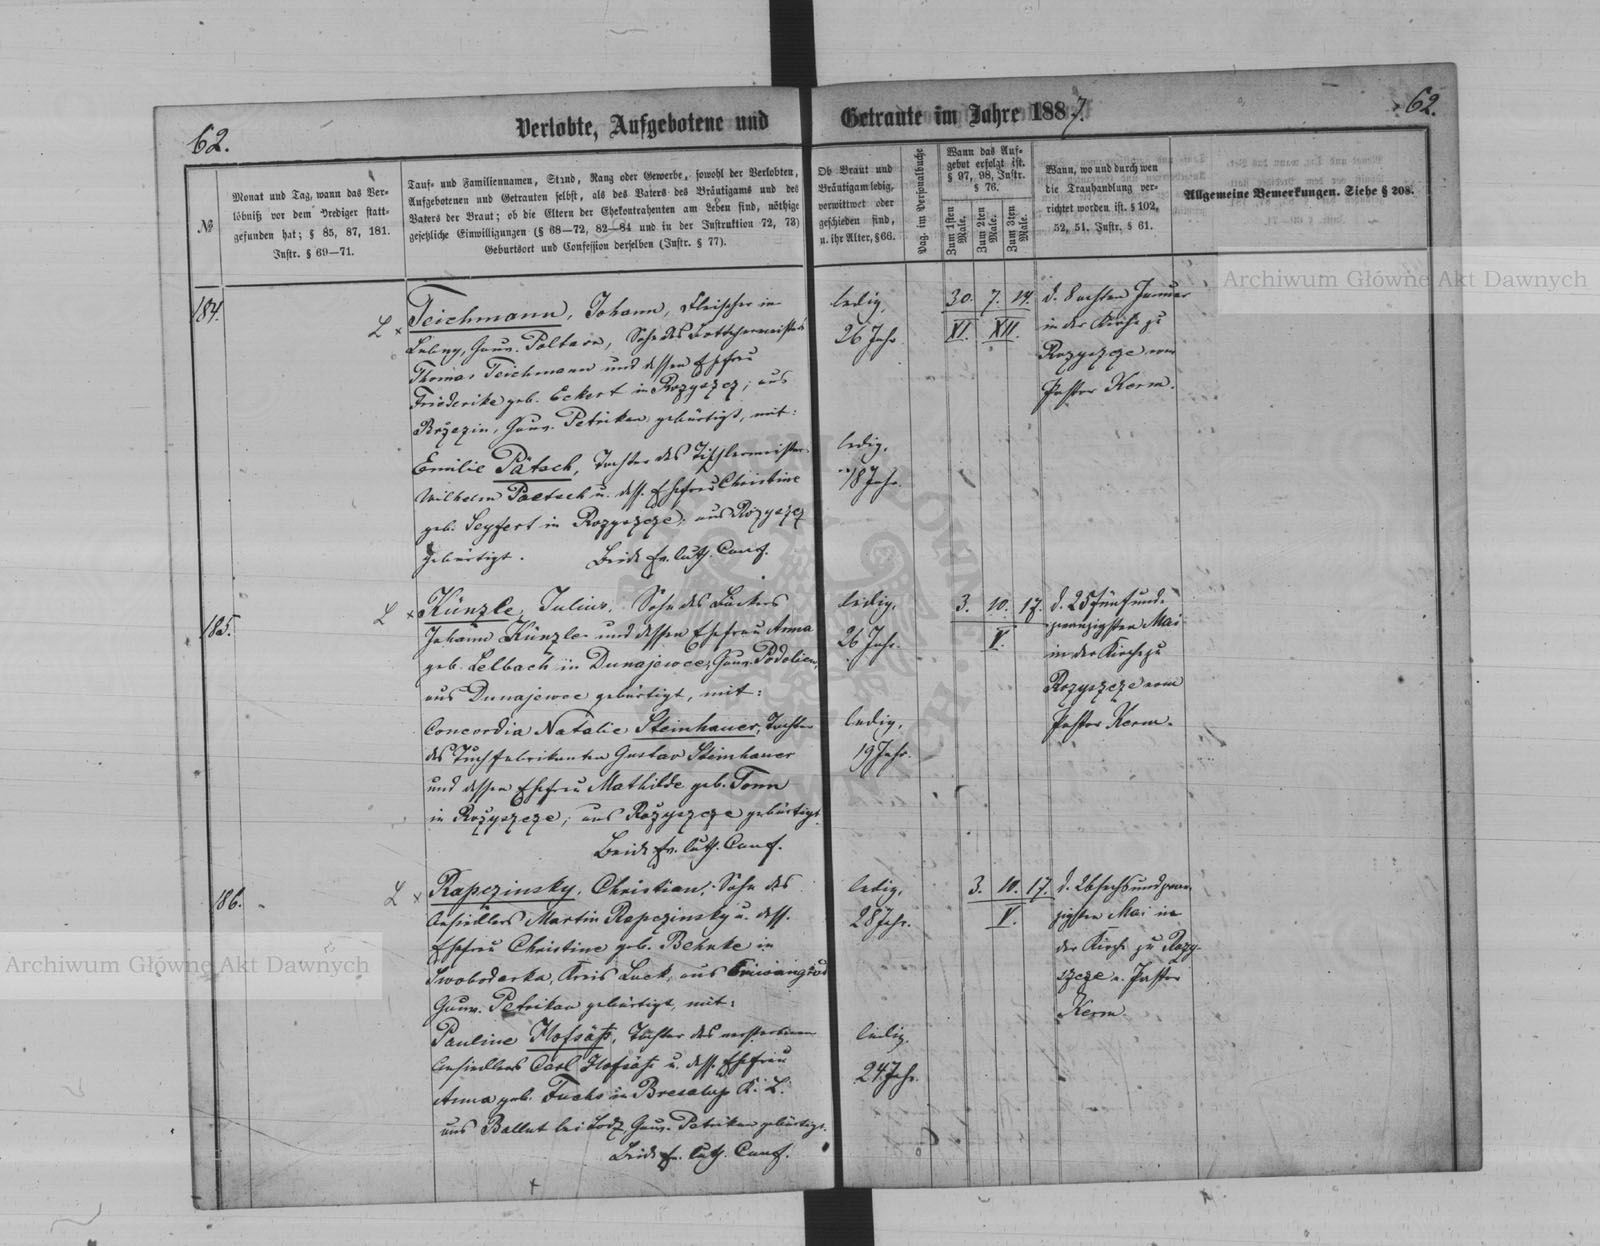 62.
Verlobte, Aufgebotene und
Getraute im Jahre 1887.
62.
№
Monat und Tag, wann das Ver-
löbniß vor dem Prediger statt-
gefunden hat; § 85, 87, 181.
Instr. § 69—71.
Tauf- und Familiennamen, Stand, Rang oder Gewerbe, sowohl der Verlobten,
Aufgebotenen und Getrauten selbst, als des Vaters des Bräutigams und des
Vaters der Braut; ob die Eltern der Ehekontrahenten am Leben sind, nöthige
gesetzliche Einwilligungen (§ 68—72, 82—84 und in der Instruktion 72, 73)
Geburtsort und Confession derselben (Instr. § 77).
Ob Braut und
Bräutigam ledig,
verwittwet oder
geschieden sind,
u. ihr Alter, § 66.
Pag. im Personalbuche
Wann das Auf-
gebot erfolgt ist.
§ 97, 98, Instr.
§ 76.
Zum 1sten Male.
Zum 2ten Male.
Zum 3ten Male.
Wann, wo und durch wen
die Trauhandlung ver-
richtet worden ist. § 102,
52, 51. Instr. § 61.
Allgemeine Bemerkungen. Siehe § 208.
184.
L ×
Teichmann, Johann, Fleischer in
Lubny, Gouv. Poltava, Sohn des
Thomas Teichmann und dessen Ehefrau
Friederike geb. Eckert in Rozyszcz; aus
Brzezin, Gouv. Petrikau gebürtigt, mit:
Emilie Pätsch, Tochter des Tischlermeisters
Wilhelm Paetsch u. dess. Ehefrau Christine
geb. Seyfert in Rozyszcze, aus Rozyszcz
gebürtigt. Beide Ev. luth. Conf.
ledig,
26 Jahr.
ledig,
18 Jahr.
30. 7. 14.
XI. XII.
d. 8 achten Januar
in der Kirche zu
Rozyszcze vom
Pastor Kerm.
185.
L ×
Künzle, Julius, Sohn des Bäckers
Johann Künzle und dessen Ehefrau Anna
geb. Lelbach in Dunajewce, Gouv. Podolien,
aus Dunajewce gebürtigt, mit:
Concordia Natalie Steinhauer, Tochter
des Tuchfabrikanten Gustav Steinhauer
und dessen Ehefrau Mathilde geb. Tonn
in Rożyszcze; aus Rożyszcze gebürtigt.
Beide Ev. luth. Conf.
ledig,
26 Jahr.
ledig,
19 Jahr.
3. 10. 17.
V.
d. 25 fünfund-
zwanzigsten Mai
in der Kirche zu
Rozyszcze vom
Pastor Kerm.
186.
L ×
Rapczinsky, Christian, Sohn des
Ansiedlers Martin Rapczinsky u. dess.
Ehefrau Christine geb. Behnke in
Swobodarka, Kreis Luck, aus
Gouv. Petrikau gebürtigt, mit:
Pauline Hofsäß, Tochter des verstorbenen
Ansiedlers Carl Hofsäß u. dess. Ehefrau
Anna geb. Fuchs in K. L.
aus Ballut bei Lodz, Gouv. Petrikau gebürtigt.
Beide Ev. luth. Conf.
ledig,
28 Jahr.
ledig,
24 Jahr.
3. 10. 17.
V.
d. 26 sechsundzwan-
zigsten Mai in
der Kirche zu Rozy-
szcze v. Pastor
Kerm.
Archiwum Główne Akt Dawnych
Archiwum Główne Akt Dawnych